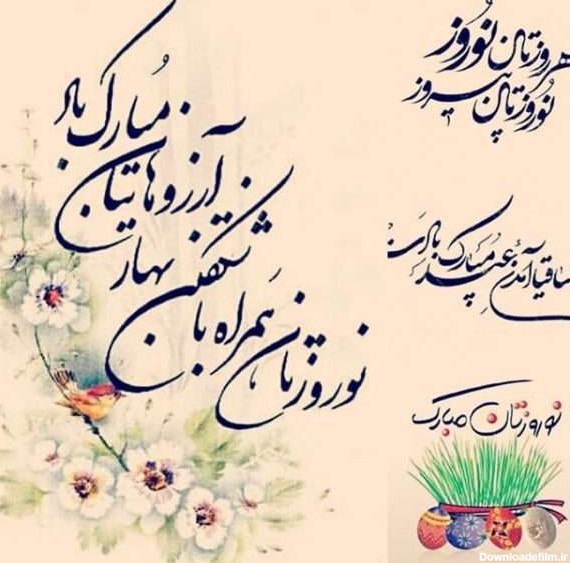 هر روزتان نوروز
نوروزتان پیروز
ساقیا آمدن عید مبارک بادت
نوروزتان مبارک
نوروزتان همراه با
شکفتن بهار
آرزوهایتان
مبارک باد
Downloadefilm.ir